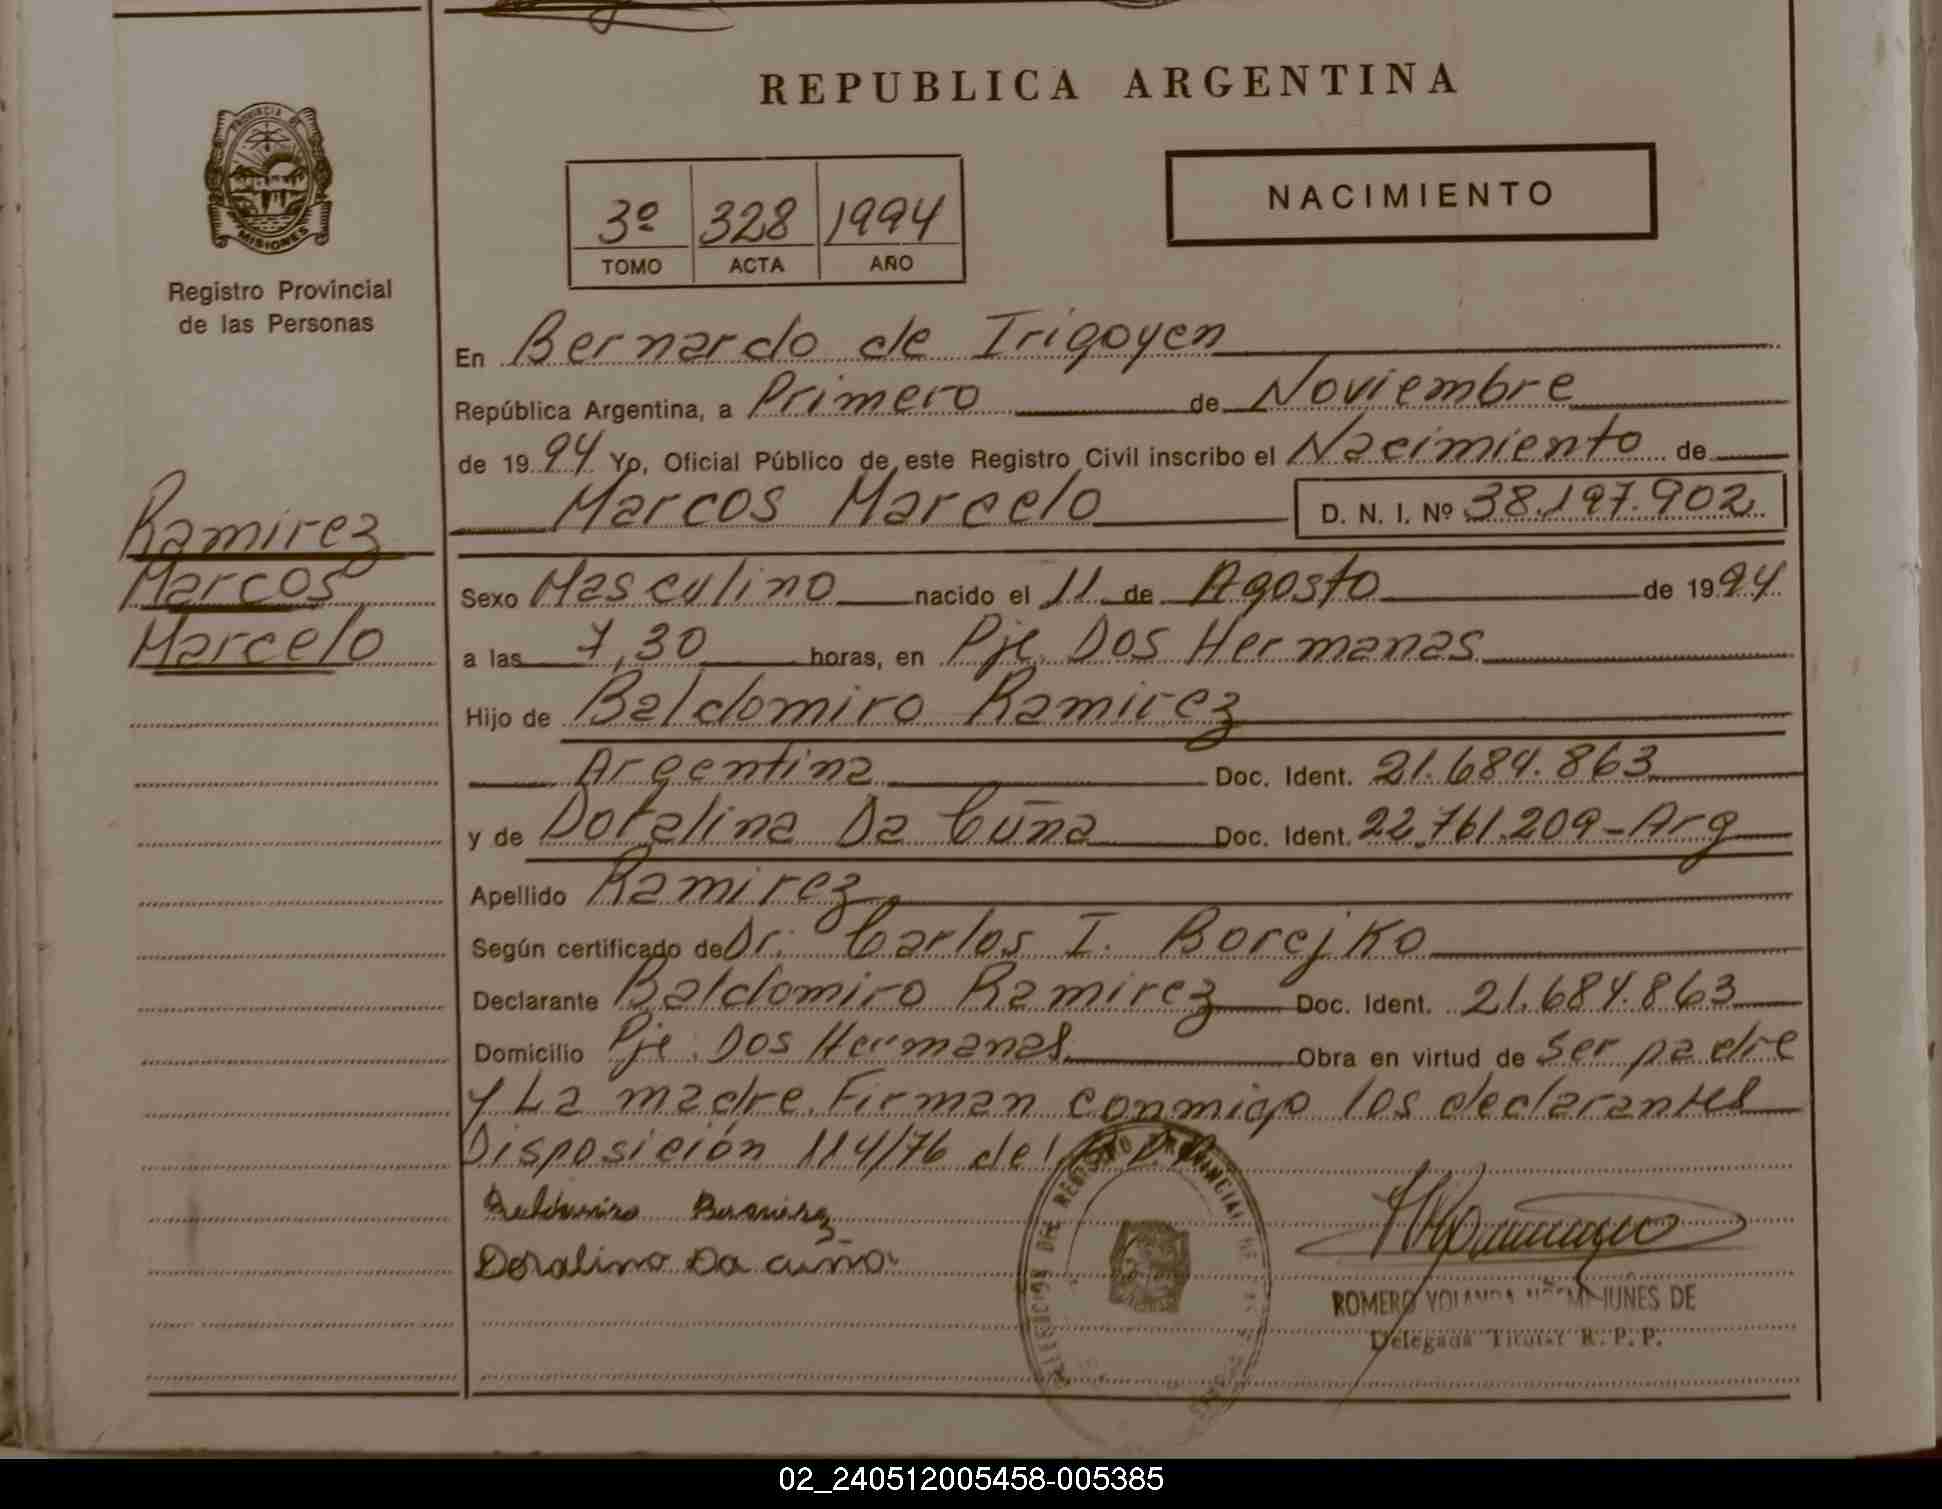 REPUBLICA ARGENTINA
PROVINCIA DE
MISIONES
Registro Provincial
de las Personas
3º 328 1994
TOMO ACTA AÑO
NACIMIENTO
En Bernardo de Irigoyen
República Argentina, a Primero de Noviembre
de 1994 Yo, Oficial Público de este Registro Civil inscribo el Nacimiento de
Marcos Marcelo D. N. I. Nº 38.197.902
Ramirez
Marcos
Marcelo
Sexo Masculino nacido el 11 de Agosto de 1994
a las 7,30 horas, en Pje. Dos Hermanas
Hijo de Baldomiro Ramirez
Argentina Doc. Ident. 21.684.863
y de Doralina Da Cuña Doc. Ident. 22.761.209-Arg
Apellido Ramirez
Según certificado de Dr. Carlos I. Borejko
Declarante Baldomiro Ramirez Doc. Ident. 21.684.863
Domicilio Pje. Dos Hermanas Obra en virtud de ser padre
y La madre. Firman conmigo los declarantes
Disposición 114/76 del
Baldomiro Ramirez
Doralina Da cuña
DEL REGISTRO PROVINCIAL DE
ROMERO YOLANDA NOEMI JUNES DE
Delegada Titular R. P. P.
02_240512005458-005385